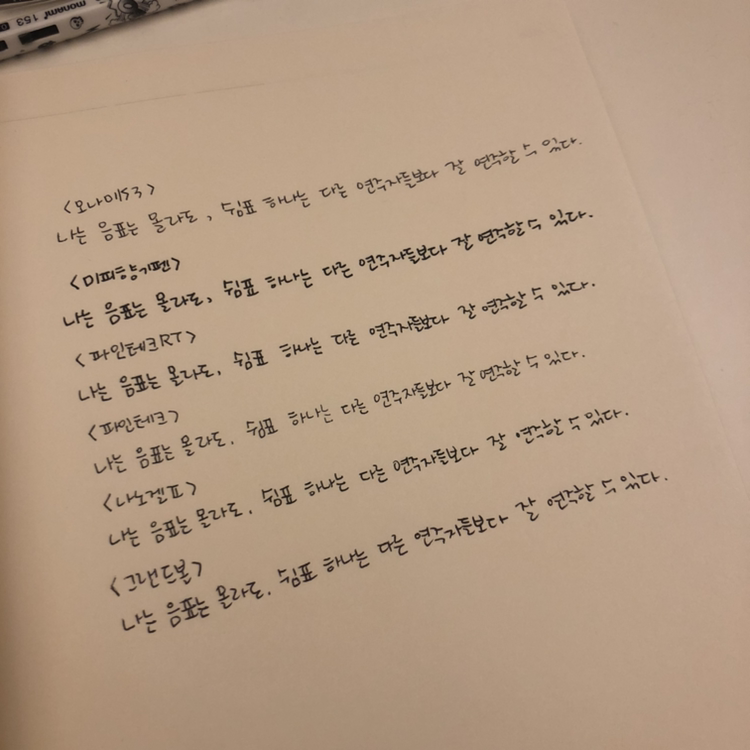 monami 153
<모나미153>
나는 음표는 몰라도, 쉼표 하나는 다른 연주자들보다 잘 연주할 수 있다.
<미피향기펜>
나는 음표는 몰라도, 쉼표 하나는 다른 연주자들보다 잘 연주할 수 있다.
<파인테크RT>
나는 음표는 몰라도, 쉼표 하나는 다른 연주자들보다 잘 연주할 수 있다.
<파인테크>
나는 음표는 몰라도, 쉼표 하나는 다른 연주자들보다 잘 연주할 수 있다.
<나노겔프>
나는 음표는 몰라도, 쉼표 하나는 다른 연주자들보다 잘 연주할 수 있다.
<그랜드볼>
나는 음표는 몰라도, 쉼표 하나는 다른 연주자들보다 잘 연주할 수 있다.